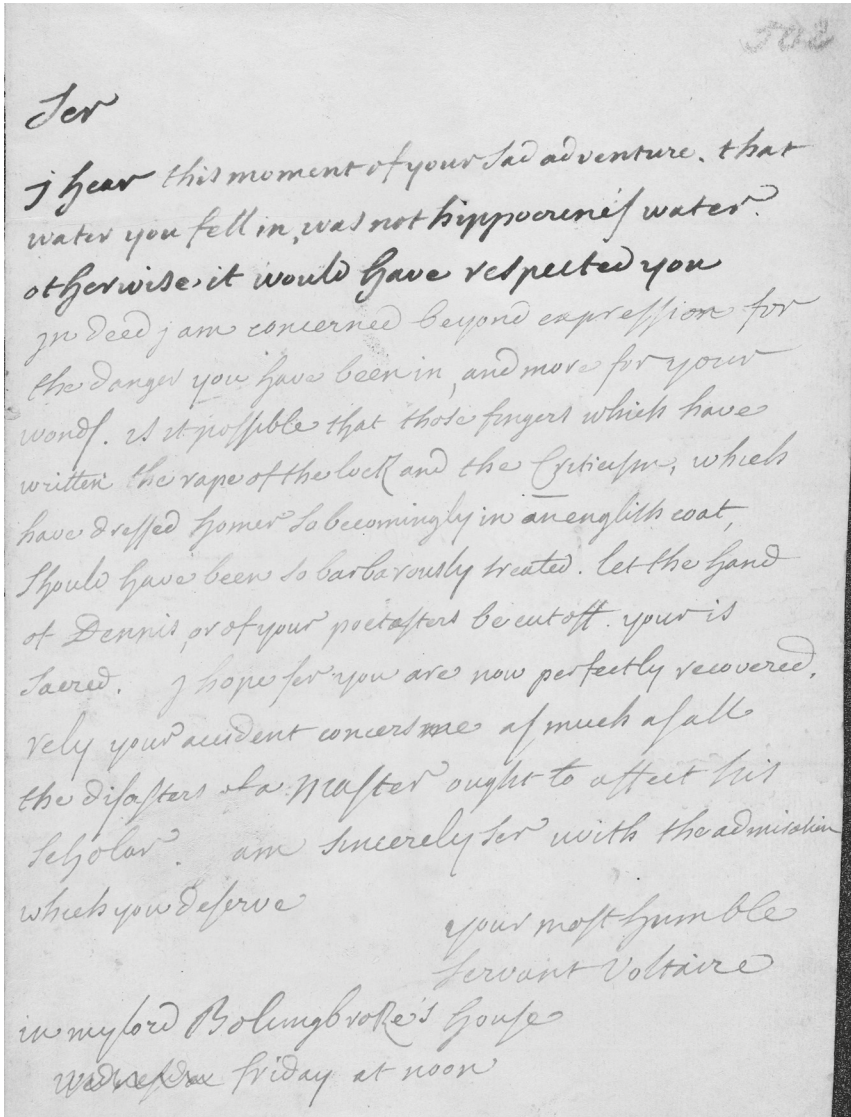 Ser
j hear this moment of your sad adventure. that
water you fell in, was not hippocrene's water.
otherwise it would have respected you
jn deed j am concerned beyond expression for
the danger you have been in, and more for your
wonds. is it possible that those fingers which have
written the rape of the lock and the Criticism, which
have dressed homer so becomingly in an english coat,
should have been so barbarously treated. let the hand
of Dennis, or of your poetasters be cut off. your is
sacred. j hope ser you are now perfectly recovered.
rely your accident concers me as much as all
the disasters of a Master ought to affect his
scholar. am sincerely ser with the admiration
which you deserve
your most humble
servant Voltaire
in my lord Bolingbroke's house
friday at noon